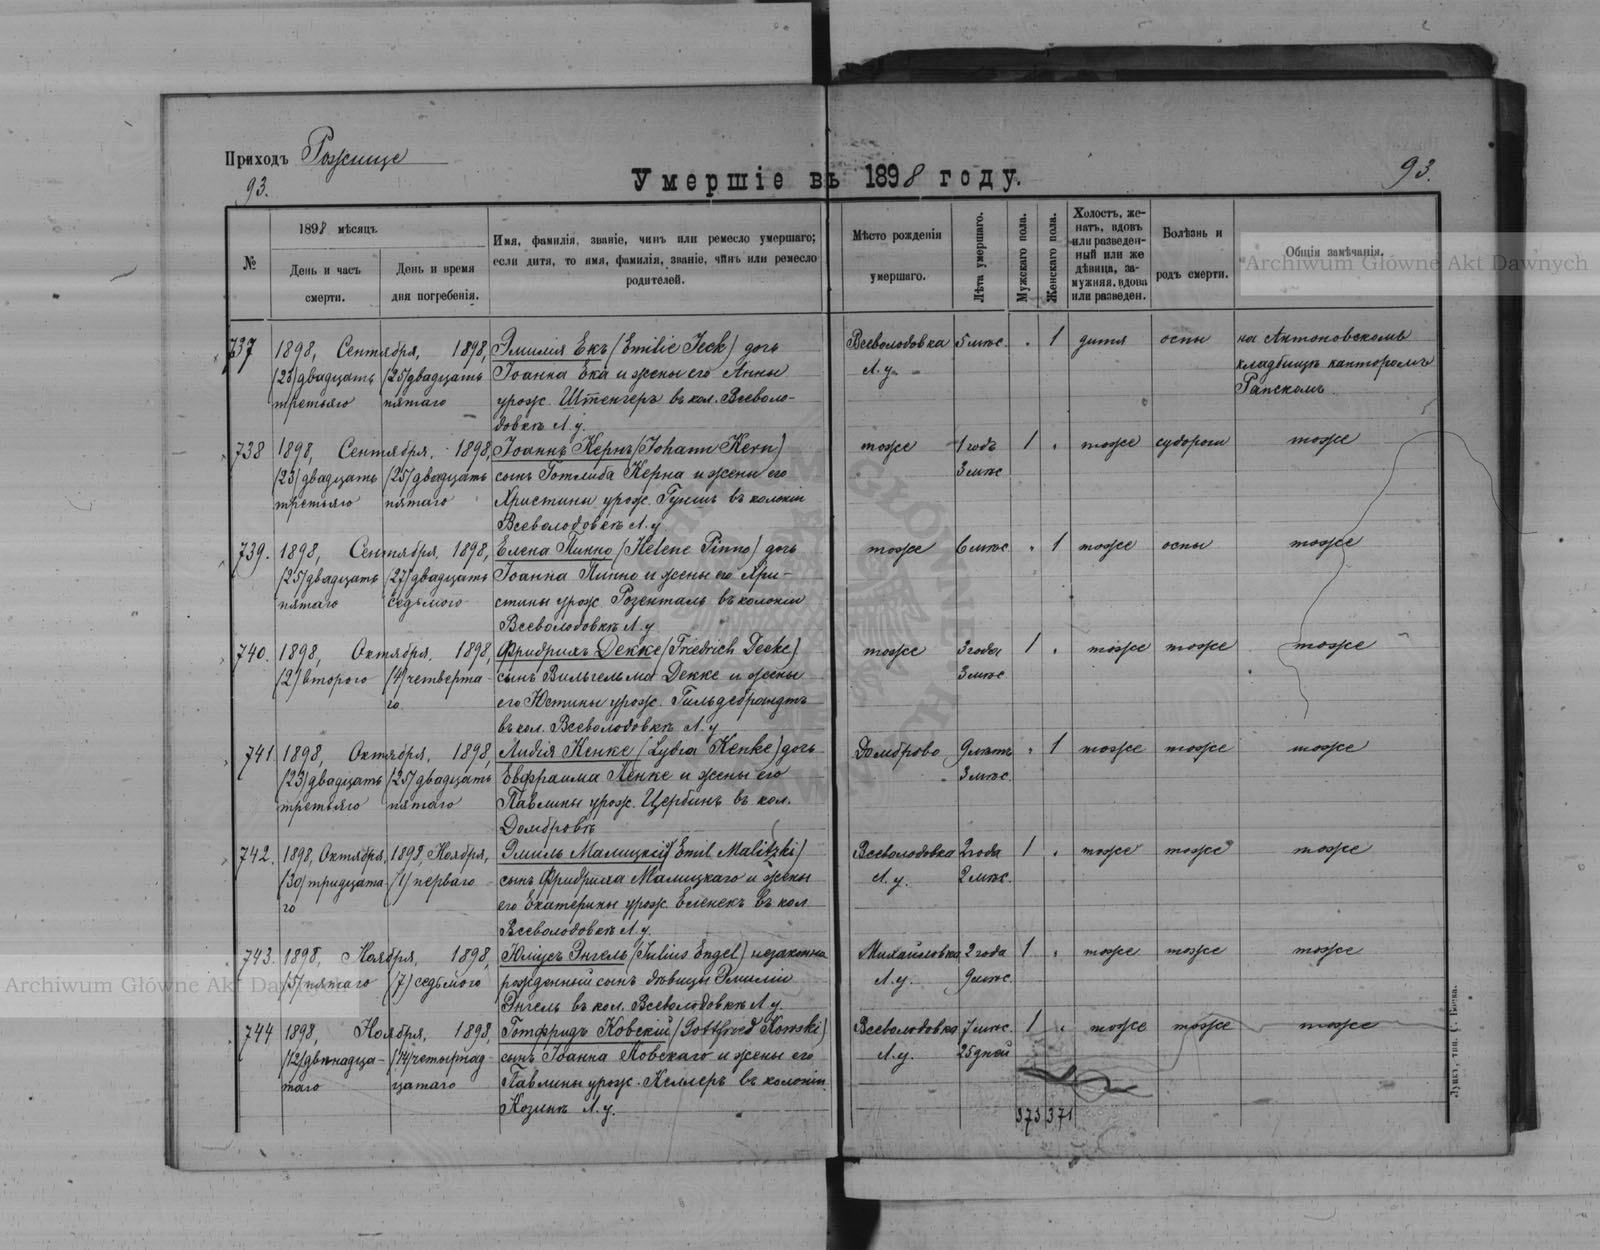 Приходъ Рожище
93.
Умершіе въ 1898 году.
93.
№
1898 мѣсяцъ
День и часъ смерти.
День и время дня погребенія.
Имя, фамилія, званіе, чинъ или ремесло умершаго;
если дитя, то имя, фамилія, званіе, чинъ или ремесло
родителей.
Мѣсто рожденія
умершаго.
Лѣта умершаго.
Мужскаго пола.
Женскаго пола.
Холостъ, же-
натъ, вдовъ
или разведен-
ный или же
дѣвица, за-
мужняя, вдова
или разведен.
Болѣзнь и
родъ смерти.
Общія замѣчанія.
737 1898, Сентября, 1898, Эмилія Екъ (Emilie Jeck) дочь Всеволодовка 5 мѣс. " 1 дитя оспы на Антоновскомъ
(23) двадцать (25) двадцать Іоанна Ека и жены его Анны Л. у. кладбищѣ канторомъ
третьяго пятаго урож. Штенгеръ въ кол. Всеволо- Рапскомъ
довкѣ Л. у.
738 1898, Сентября, 1898, Іоаннъ Кернъ (Johann Kern) тоже 1 годъ 1 " тоже судороги тоже
(23) двадцать (25) двадцать сынъ Готлиба Керна и жены его 3 мѣс.
третьяго пятаго Христины урож. въ колоніи
Всеволодовкѣ Л. у.
739. 1898, Сентября, 1898, Елена Пинно (Helene Pinno) дочь тоже 6 мѣс. " 1 тоже оспы тоже
(25) двадцать (27) двадцать Іоанна Пинно и жены его Хри-
пятаго седьмого стины урож. Розенталь въ колоніи
Всеволодовкѣ Л. у.
740. 1898, Октября, 1898, Фридрихъ Декке (Friedrich Decke) тоже 3 года 1 " тоже тоже тоже
(2) второго (4) четверта- сынъ Вильгельма Декке и жены 3 мѣс.
го его Юстины урож. Гильдебрандтъ
въ кол. Всеволодовкѣ Л. у.
741 1898, Октября, 1898, Лидія Кенке (Lydia Kenke) дочь Домброво 9 лѣтъ " 1 тоже тоже тоже
(23) двадцать (25) двадцать Евфраима Кенке и жены его 3 мѣс.
третьяго пятаго Павлины урож. Цербинъ въ кол.
Домбровѣ
742. 1898, Октября, 1898, Ноября, Эмиль Малицкій (Emil Malitzki) Всеволодовка 2 года 1 " тоже тоже тоже
(30) тридцата- (1) перваго сынъ Фридриха Малицкаго и жены Л. у. 2 мѣс.
го его Екатерины урож. Еленекъ въ кол.
Всеволодовкѣ Л. у.
743. 1898, Ноября, 1898, Юліусъ Энгель (Julius Engel) незаконно Михайловка 2 года 1 " тоже тоже тоже
(5) пятаго (7) седьмого рожденный сынъ дѣвицы Эмиліи Л. у. 9 мѣс.
Энгель въ кол. Всеволодовкѣ Л. у.
744 1898, Ноября, 1898, Готфридъ Ковскій (Gottfried Kowski) Всеволодовка 7 мѣс. 1 " тоже тоже тоже
(12) двѣнадца- (14) четырнад- сынъ Іоанна Ковскаго и жены его Л. у. 25 дней
таго цатаго Павлины урож. Келлеръ въ колоніи
Козинѣ Л. у.
373 371
Луцкъ, тип. С. Бонка.
Archiwum Główne Akt Dawnych
Archiwum Główne Akt Dawnych